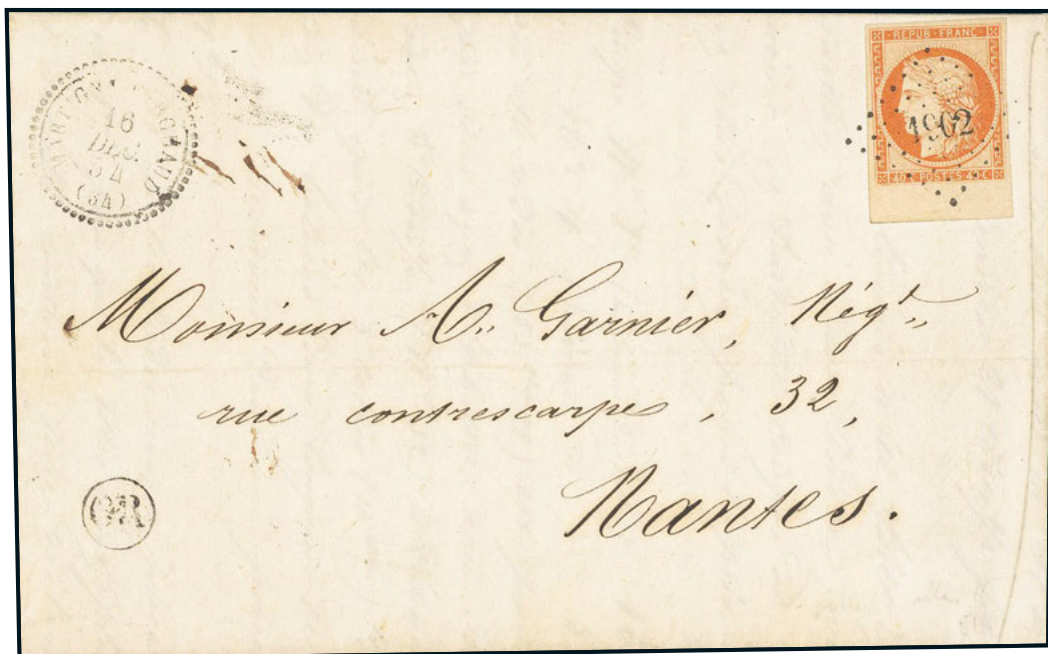 16
DEC.
54
(34)
REPUB·FRANC·
1902
40c POSTES 40c
Monsieur A. Garnier, Négt.
rue contrescarpe, 32,
OR
Nantes.